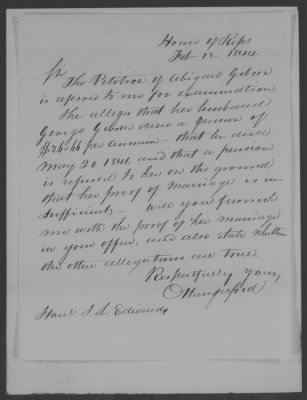 House of Reps
Feb 12 1844
Sir
The Petition of Abigail Gibson
is referred to me for examination
She alleges that her husband
George Gibson drew a pension of
$26.66 per annum - that he died
May 20 1841, and that a pension
is refused to her on the ground
that her proof of marriage is in-
sufficient - will you furnish
me with the proof of her marriage
in your office, and also state whether
the other allegations are true
Respectfully yours,
Hon J L Edwards